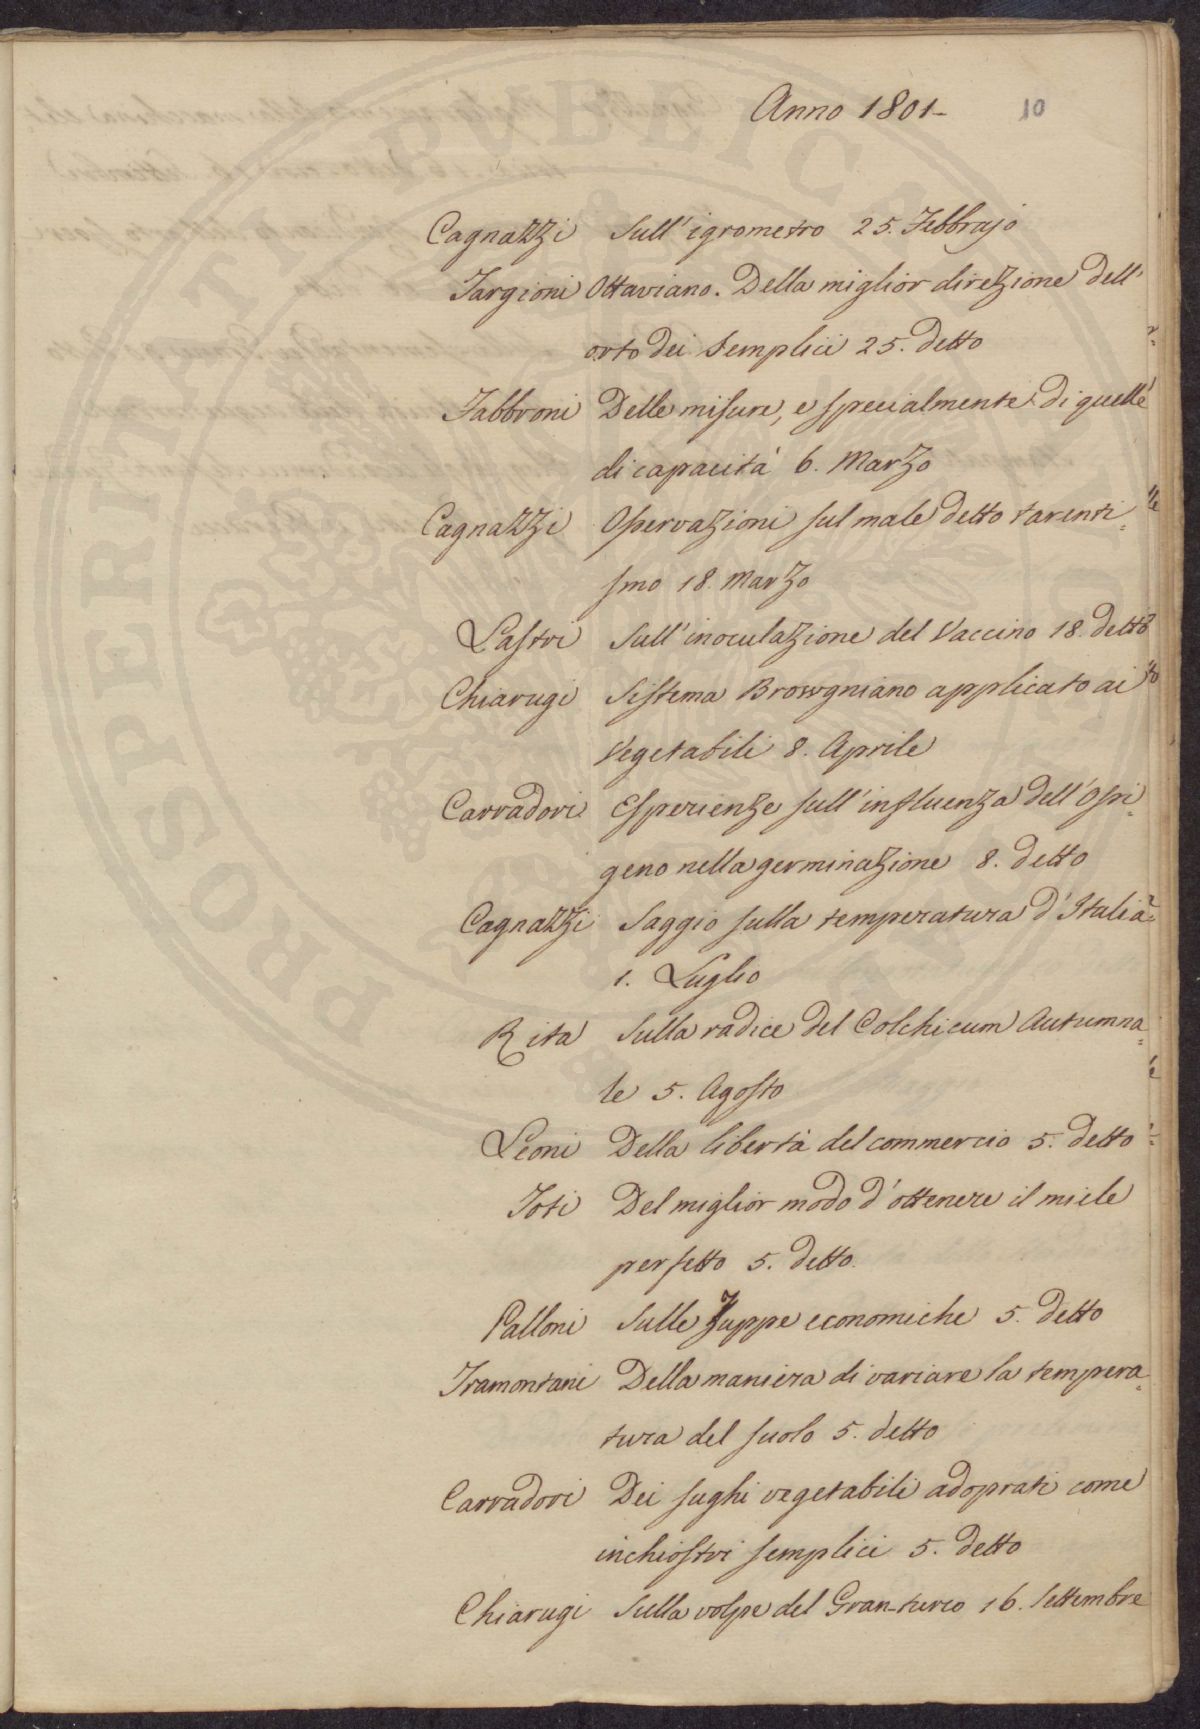 Anno 1801-
10
Cagnazzi Sull'igrometro 25. Febbrajo
Targioni Ottaviano. Della miglior direzione dell'
orto dei Semplici 25. detto
Fabbroni Delle misure, e specialmente di quelle
di capacità 6. Marzo
Cagnazzi Osservazioni sul male detto tarenti=
smo 18. Marzo
Lastri Sull'inoculazione del Vaccino 18. detto
Chiarugi Sistema Browgniano applicato ai
Vegetabili 8. Aprile
Carradori Esperienze sull'influenza dell'Ossi=
geno nella germinazione 8. detto
Cagnazzi Saggio sulla temperatura d'Italia
1. Luglio
Rita Sulla radice del Colchicum Autumna=
le 5. Agosto
Leoni Della libertà del commercio 5. detto
Toti Del miglior modo d'ottenere il miele
perfetto 5. detto.
Palloni Sulle Zuppe economiche 5. detto
Tramontani Della maniera di variare la tempera=
tura del suolo 5. detto
Carradori Dei sughi vegetabili adoprati come
inchiostri semplici 5. detto
Chiarugi Sulla volpe del Gran-turco 16. Settembre
PROSPERITATI PUBLICAE